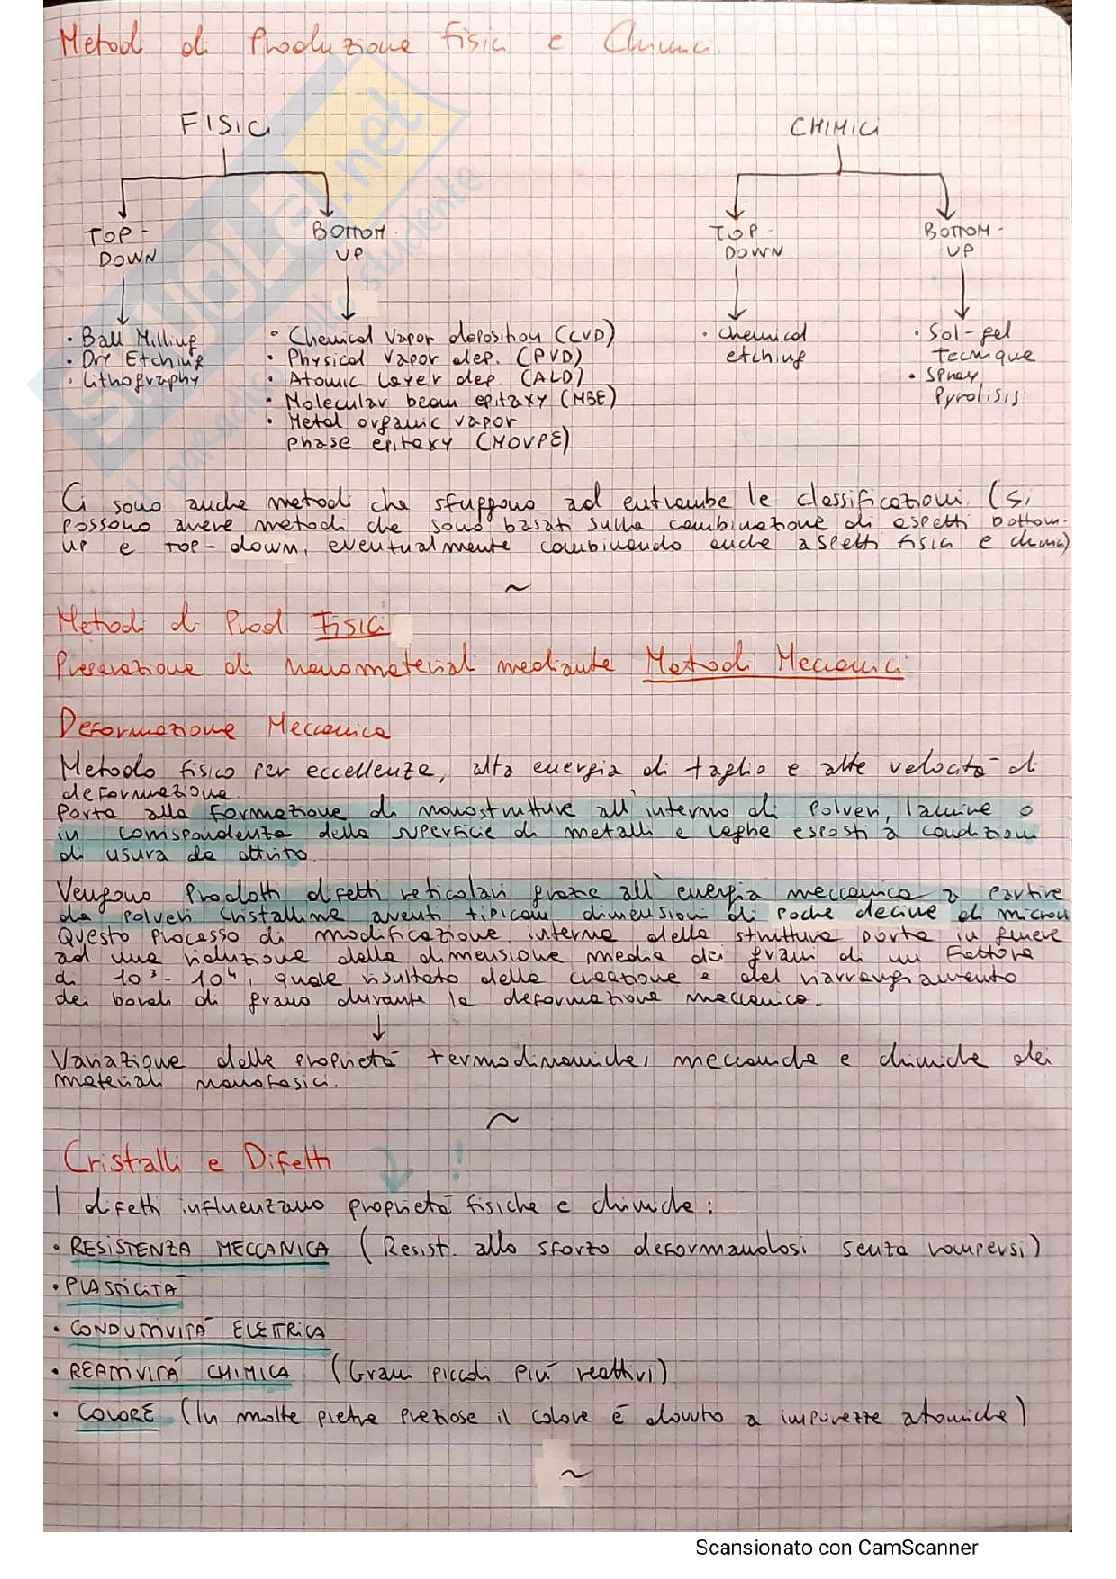 Metodi di Produzione Fisici e Chimici
FISICI
CHIMICI
TOP-
DOWN
BOTTOM-
UP
TOP-
DOWN
BOTTOM-
UP
• Ball Milling
• Dry Etching
• Lithography
• Chemical Vapor deposition (CVD)
• Physical Vapor dep. (PVD)
• Atomic Layer dep. (ALD)
• Molecular beam epitaxy (MBE)
• Metal organic vapor
phase epitaxy (MOVPE)
• Chemical
etching
• Sol-gel
Tecnique
• Spray
Pyrolisis
Ci sono anche metodi che sfuggono ad entrambe le classificazioni. (Si
possono avere metodi che sono basati sulla combinazione di aspetti bottom-
up e top-down, eventualmente combinando anche aspetti fisici e chimici)
~
Metodi di Prod Fisici
Preparazione di nanomateriali mediante Metodi Meccanici
Deformazione Meccanica
Metodo fisico per eccellenza, alta energia di taglio e alte velocità di
deformazione.
Porta alla formazione di nanostrutture all'interno di polveri, lamine o
in corrispondenza della superficie di metalli e leghe esposti a condizioni
di usura da attrito.
Vengono Prodotti difetti reticolari grazie all'energia meccanica a partire
da polveri cristalline aventi tipicam. dimensioni di poche decine di micron
Questo processo di modificazione interna della struttura porta in genere
ad una riduzione della dimensione media dei grani di un fattore
di 10³-10⁴, quale risultato della creazione e del riarrangiamento
dei bordi di grano durante la deformazione meccanica.
Variazione delle proprietà termodinamiche, meccaniche e chimiche dei
materiali nanofasici.
~
Cristalli e Difetti !
I difetti influenzano proprietà fisiche e chimiche:
• RESISTENZA MECCANICA (Resist. allo sforzo deformandosi senza rompersi)
• PLASTICITÀ
• CONDUTTIVITÀ ELETTRICA
• REATTIVITÀ CHIMICA (Grani piccoli più reattivi)
• COLORE (In molte pietre preziose il colore è dovuto a impurezze atomiche)
~
Scansionato con CamScanner